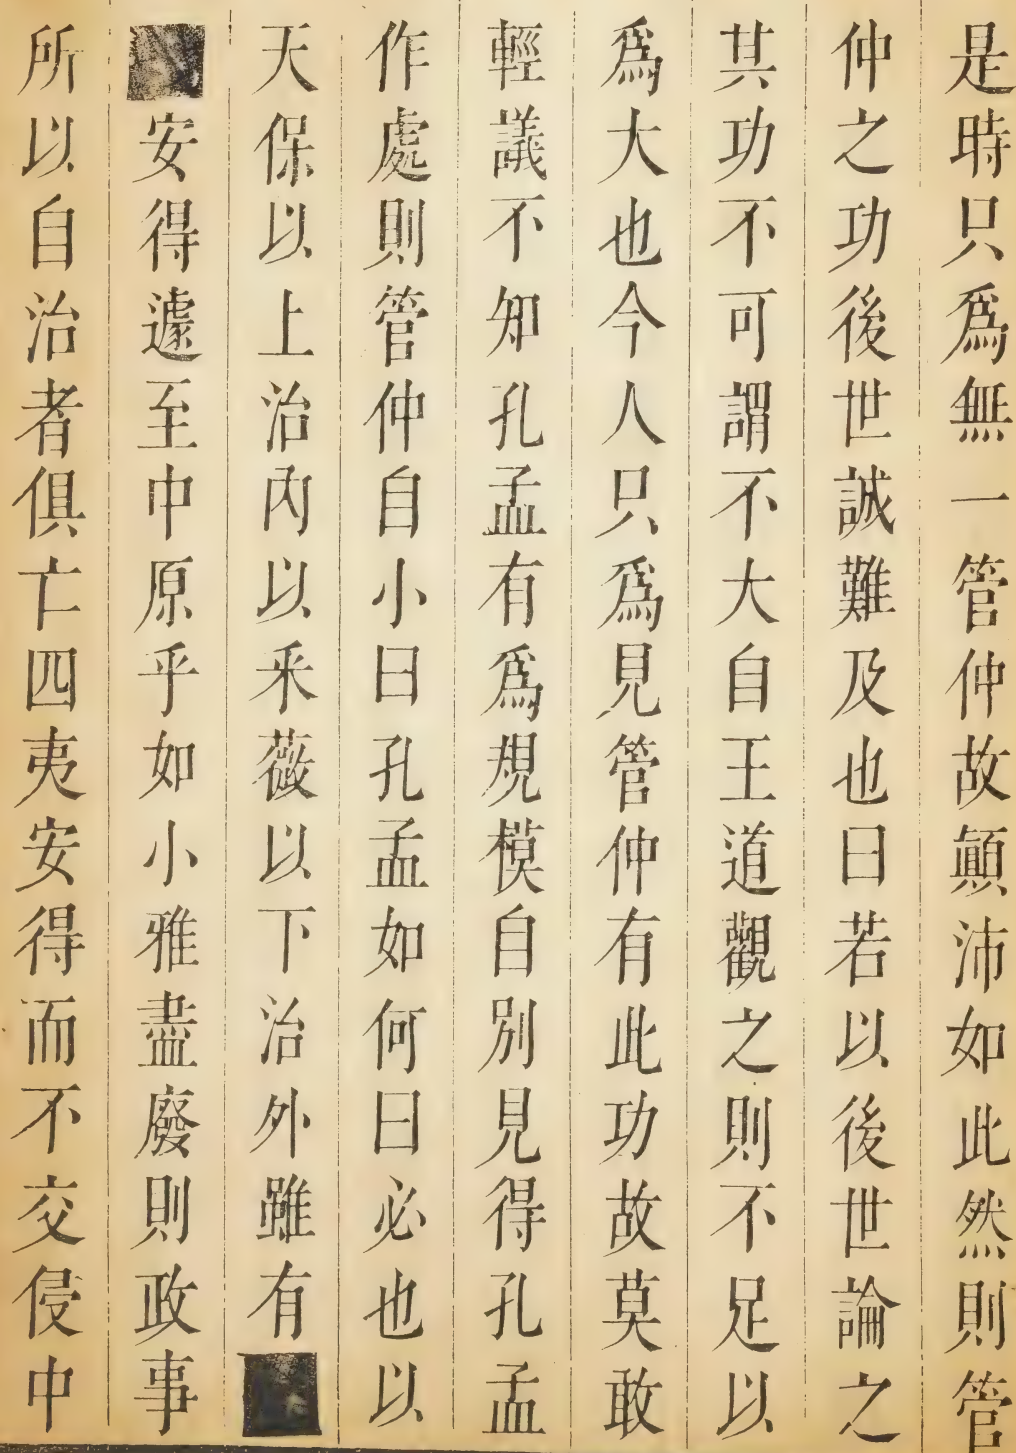 是時只爲無一管仲故顛沛如此然則管
仲之功後世誠難及也曰若以後世論之
其功不可謂不大自王道觀之則不足以
爲大也今人只爲見管仲有此功故莫敢
輕議不知孔孟有爲規模自別見得孔孟
作處則管仲自小曰孔孟如何曰必也以
天保以上治內以采薇以下治外雖有
安得遽至中原乎如小雅盡廢則政事
所以自治者俱亡四夷安得而不交侵中